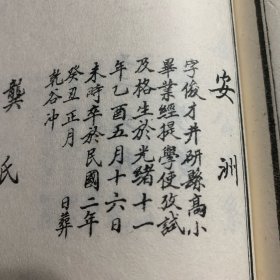 安洲
字俊才井研縣高小
畢業經提學使攷試
及格生於光緒十一
年乙酉五月十六日
未時卒於民國二年
癸丑正月　日葬
乾谷冲
龔氏